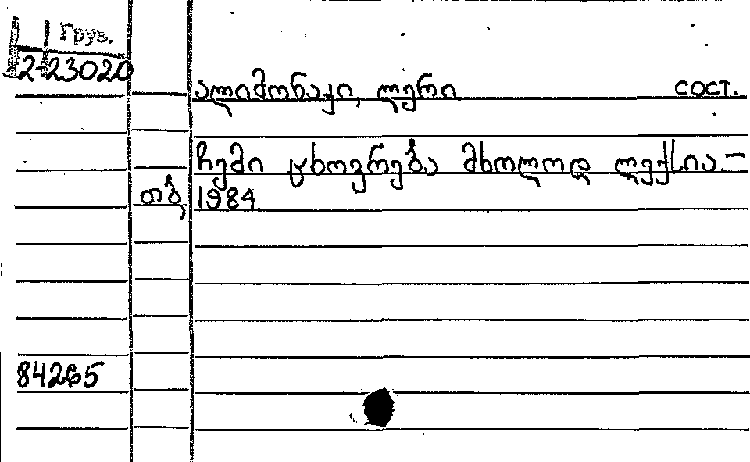 Груз.
2-23020
ალიმონაკი, ლერი сост.
ჩემი ცხოვრება მხოლოდ ლექსია.-
თბ, 1984
84265